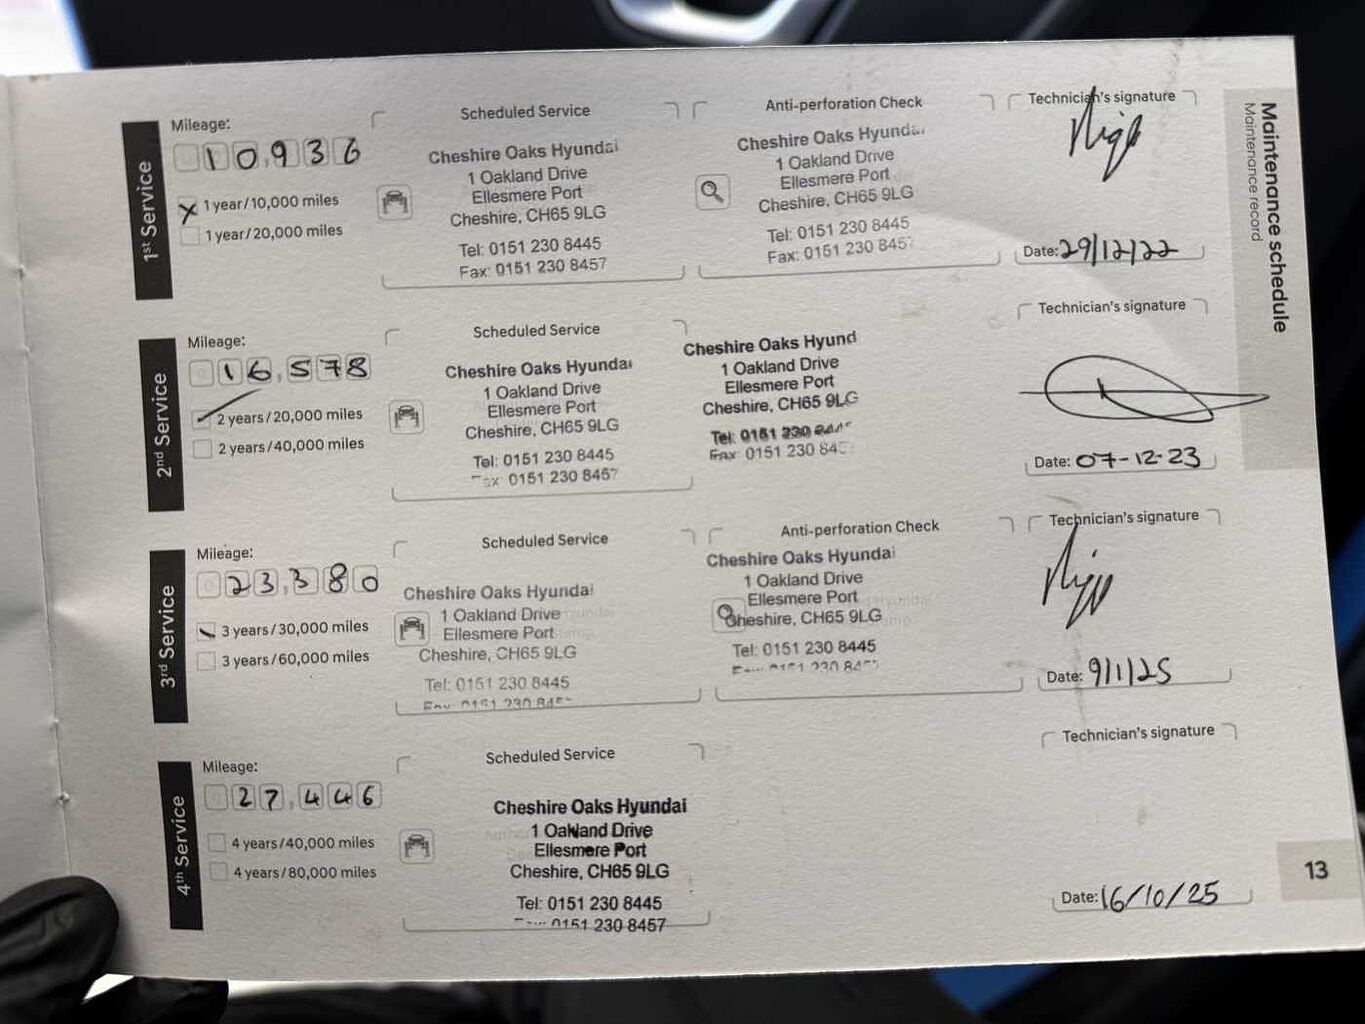 Maintenance schedule
Maintenance record
1st Service
Mileage:
10,936
1 year/10,000 miles
1 year/20,000 miles
Scheduled Service
Cheshire Oaks Hyundai
1 Oakland Drive
Ellesmere Port
Cheshire, CH65 9LG
Tel: 0151 230 8445
Fax: 0151 230 8457
Anti-perforation Check
Cheshire Oaks Hyundai
1 Oakland Drive
Ellesmere Port
Cheshire, CH65 9LG
Tel: 0151 230 8445
Fax: 0151 230 8457
Technician's signature
Date: 29/12/22
2nd Service
Mileage:
16,578
2 years/20,000 miles
2 years/40,000 miles
Scheduled Service
Cheshire Oaks Hyundai
1 Oakland Drive
Ellesmere Port
Cheshire, CH65 9LG
Tel: 0151 230 8445
Fax: 0151 230 8457
Cheshire Oaks Hyund
1 Oakland Drive
Ellesmere Port
Cheshire, CH65 9LG
Tel: 0151 230 844
Fax: 0151 230 84
Technician's signature
Date: 07-12-23
3rd Service
Mileage:
23,380
3 years/30,000 miles
3 years/60,000 miles
Scheduled Service
Cheshire Oaks Hyundai
1 Oakland Drive
Ellesmere Port
Cheshire, CH65 9LG
Tel: 0151 230 8445
Fax: 0151 230 845
Anti-perforation Check
Cheshire Oaks Hyundai
1 Oakland Drive
Ellesmere Port
Cheshire, CH65 9LG
Tel: 0151 230 8445
Fax: 0151 230 8457
Technician's signature
Date: 9/1/25
4th Service
Mileage:
27,446
4 years/40,000 miles
4 years/80,000 miles
Scheduled Service
Cheshire Oaks Hyundai
1 Oakland Drive
Ellesmere Port
Cheshire, CH65 9LG
Tel: 0151 230 8445
0151 230 8457
Technician's signature
Date: 16/10/25
13